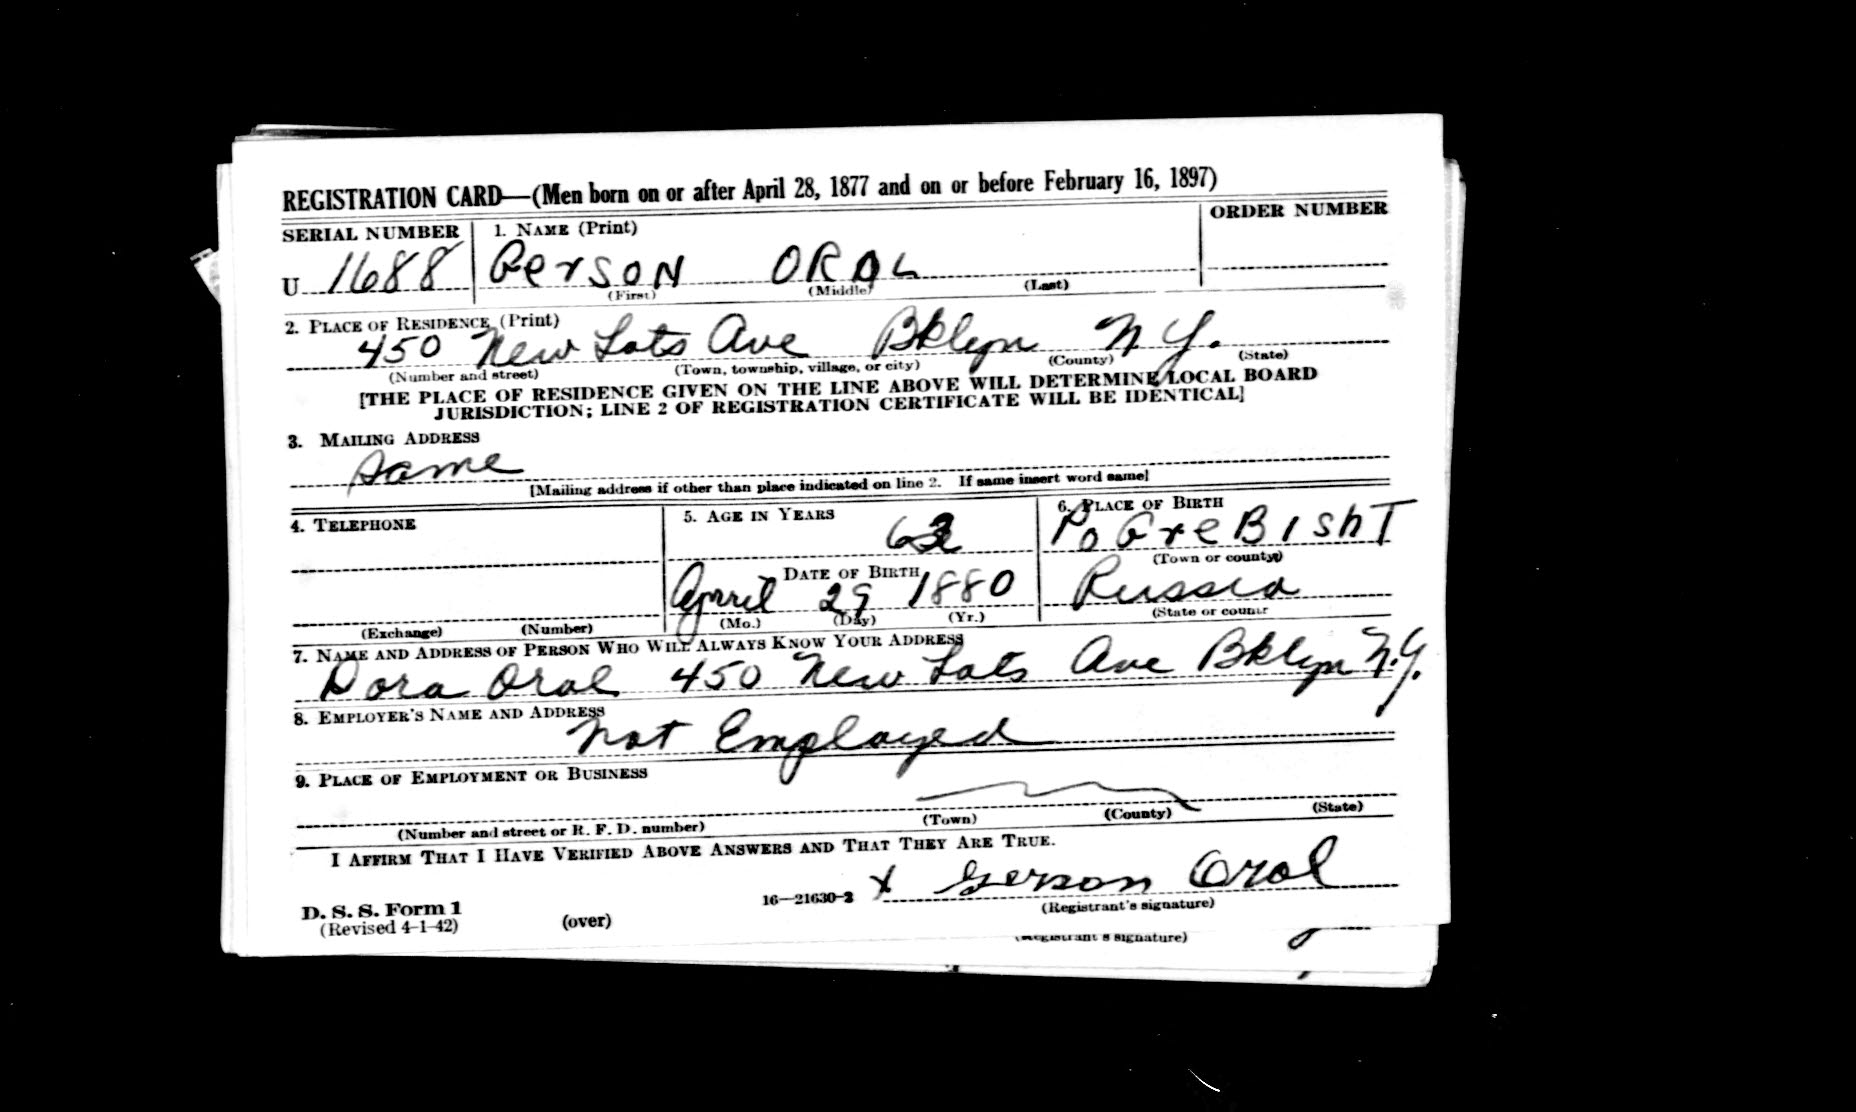 REGISTRATION CARD—(Men born on or after April 28, 1877 and on or before February 16, 1897)
SERIAL NUMBER 1. NAME (Print) ORDER NUMBER
U 1688 Gerson ORAL
(First) (Middle) (Last)
2. PLACE OF RESIDENCE (Print)
450 New Lots Ave Bklyn N.Y.
(Number and street) (Town, township, village, or city) (County) (State)
[THE PLACE OF RESIDENCE GIVEN ON THE LINE ABOVE WILL DETERMINE LOCAL BOARD
JURISDICTION; LINE 2 OF REGISTRATION CERTIFICATE WILL BE IDENTICAL]
3. MAILING ADDRESS
Same
[Mailing address if other than place indicated on line 2. If same insert word same]
4. TELEPHONE 5. AGE IN YEARS 6. PLACE OF BIRTH
PoGreBishT
(Town or county)
DATE OF BIRTH
April 29 1880 Russia
(Exchange) (Number) (Mo.) (Day) (Yr.) (State or country
7. NAME AND ADDRESS OF PERSON WHO WILL ALWAYS KNOW YOUR ADDRESS
Dora Oral 450 New Lots Ave Bklyn N.Y.
8. EMPLOYER'S NAME AND ADDRESS
Not Employed
9. PLACE OF EMPLOYMENT OR BUSINESS
(Number and street or R. F. D. number) (Town) (County) (State)
I AFFIRM THAT I HAVE VERIFIED ABOVE ANSWERS AND THAT THEY ARE TRUE.
16—21630-2 X Gerson Oral
D. S. S. Form 1 (Registrant's signature)
(Revised 4-1-42) (over)
(Registrant's signature)